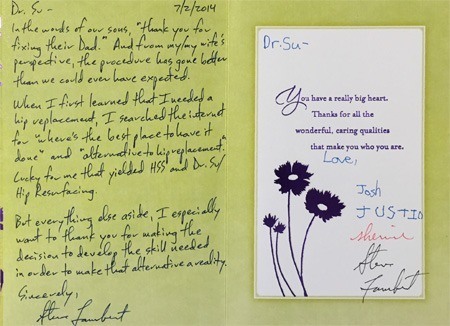 Dr. Su- 7/2/2014
In the words of our sons, "thank you for
fixing their Dad." And from my/my wife's
perspective, the procedure has gone better
than we could ever have expected.
When I first learned that I needed a
hip replacement, I searched the internet
for "where's the best place to have it
done" and "alternative to hip replacement."
Lucky for me that yielded HSS and Dr. Su/
Hip Resurfacing.
But everything else aside, I especially
want to thank you for making the
decision to develop the skill needed
in order to make that alternative a reality.
Sincerely,
Steve Lambert
Dr. Su-
You have a really big heart.
Thanks for all the
wonderful, caring qualities
that make you who you are.
Love,
Josh
JUSTIN
Sherrie
Steve
Lambert